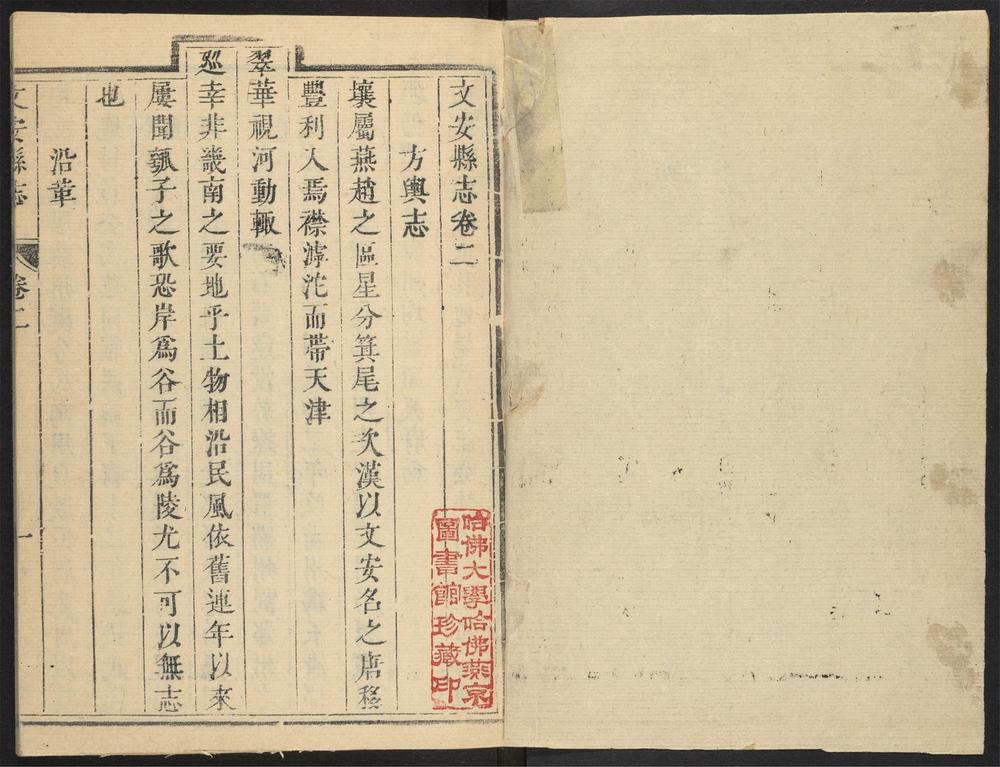 文安縣志卷二
方輿志
壤屬燕趙之區星分箕尾之次漢以文安名之唐移
豐利入焉襟滹沱而帶天津
翠華視河動輒
巡幸非畿南之要地乎土物相沿民風依舊連年以來
屢聞瓠子之歌恐岸爲谷而谷爲陵尤不可以無志
也
沿革
文安縣志
卷二
一
哈佛大學哈佛燕京
圖書館珍藏印